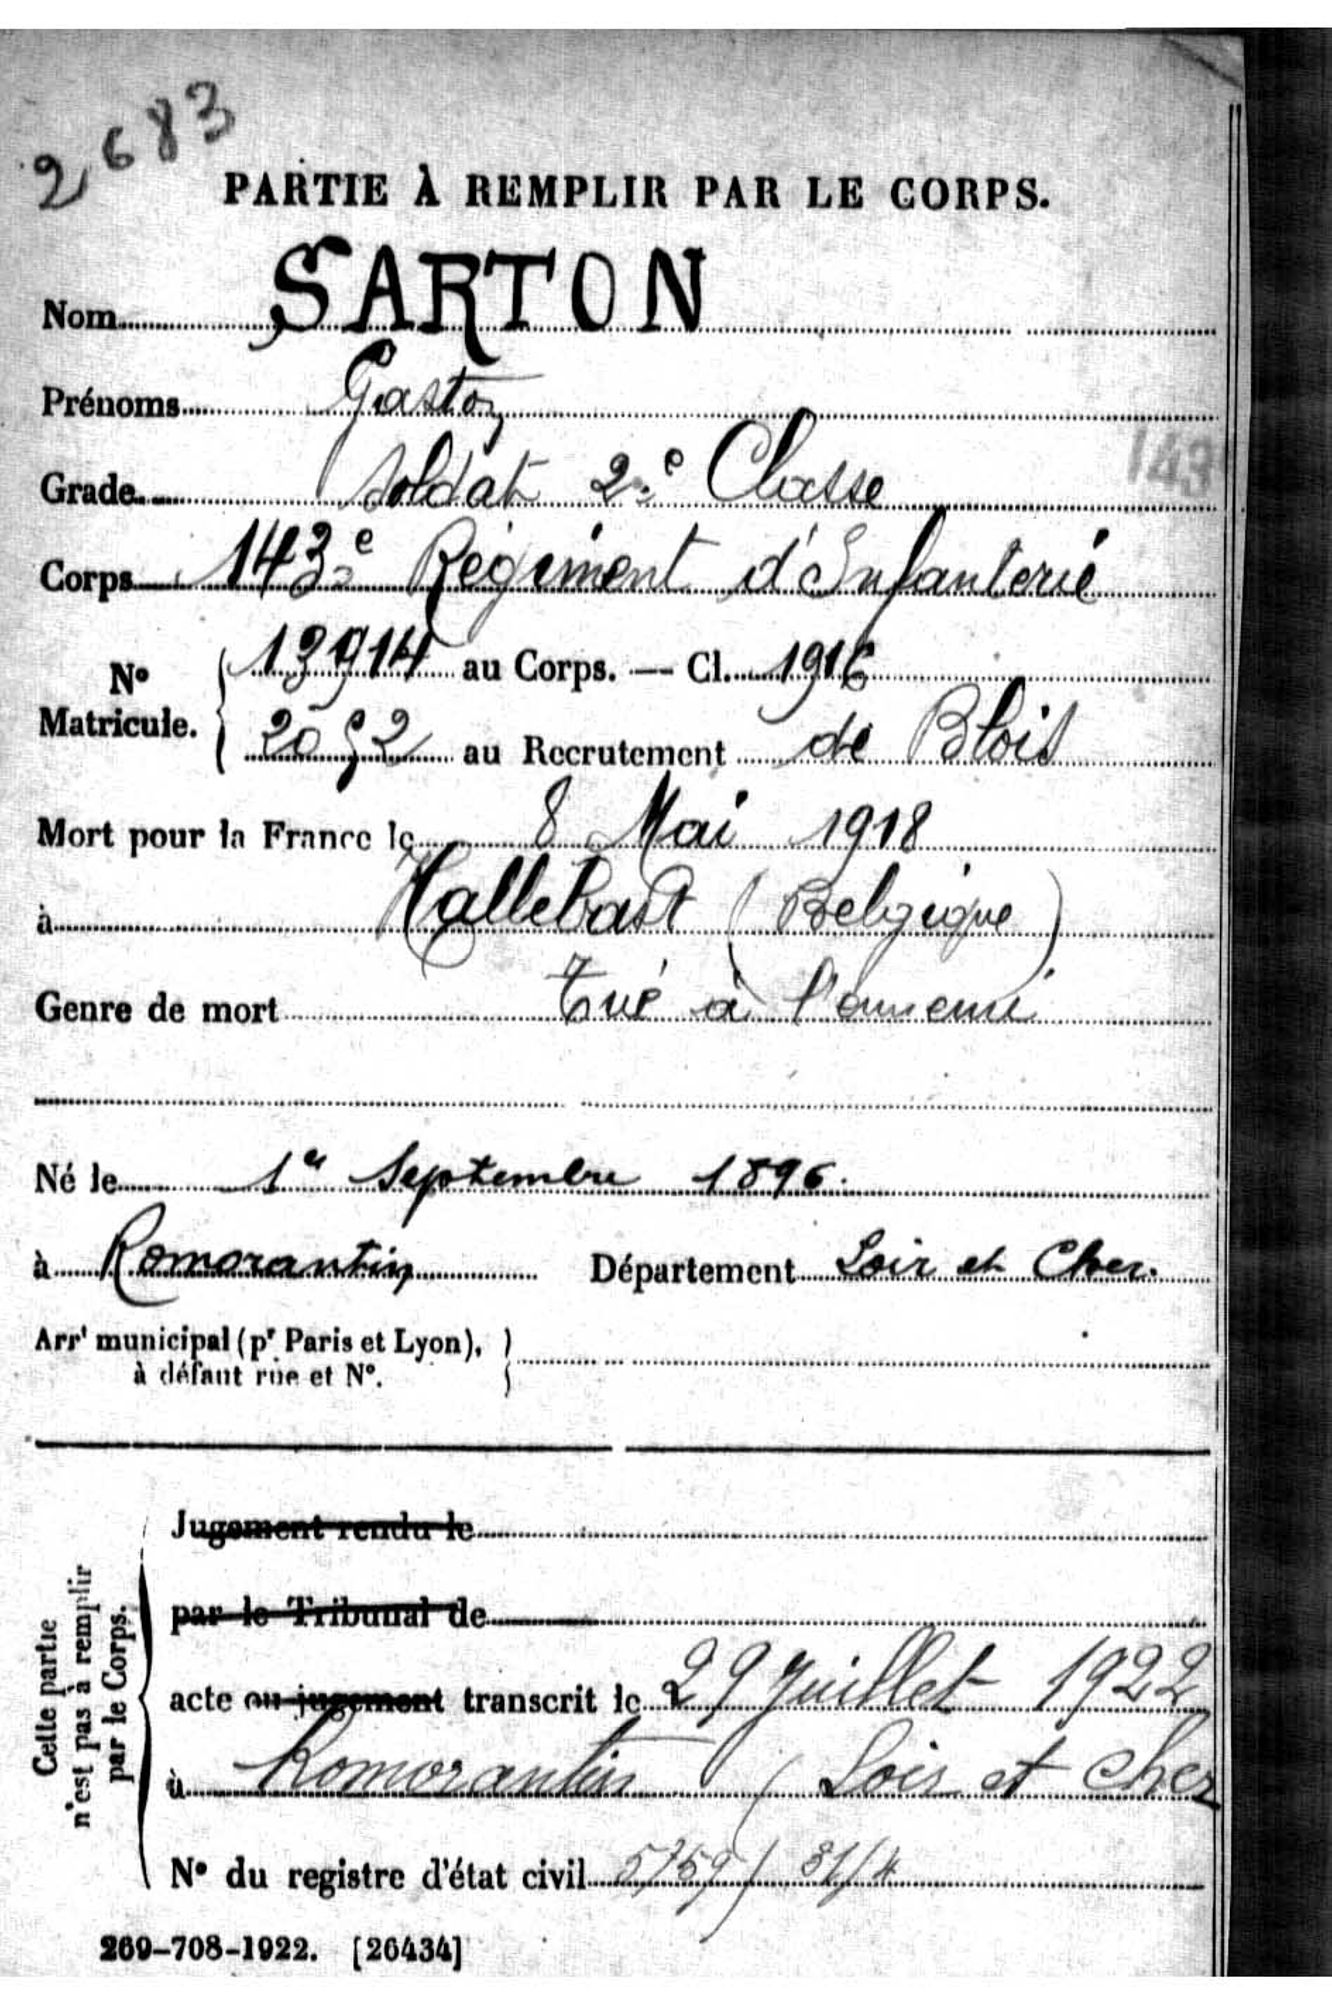 2683
PARTIE À REMPLIR PAR LE CORPS.
Nom SARTON
Prénoms Gaston
Grade Soldat 2e Classe
143
Corps 143e Régiment d'Infanterie
No Matricule. { 13914 au Corps. — Cl. 1916
au Recrutement de Blois
Mort pour la France le 8 Mai 1918
à Hallebast (Belgique)
Genre de mort Tué à l'ennemi
Né le 1er Septembre 1896.
à Romorantin Département Loir et Cher.
Arrt municipal (pr Paris et Lyon), }
à défaut rue et No.
Cette partie
n'est pas à remplir
par le Corps.
Jugement rendu le
par le Tribunal de
acte ou jugement transcrit le 29 Juillet 1922
à Romorantin (Loir et Cher
No du registre d'état civil
269-708-1922. [26434]